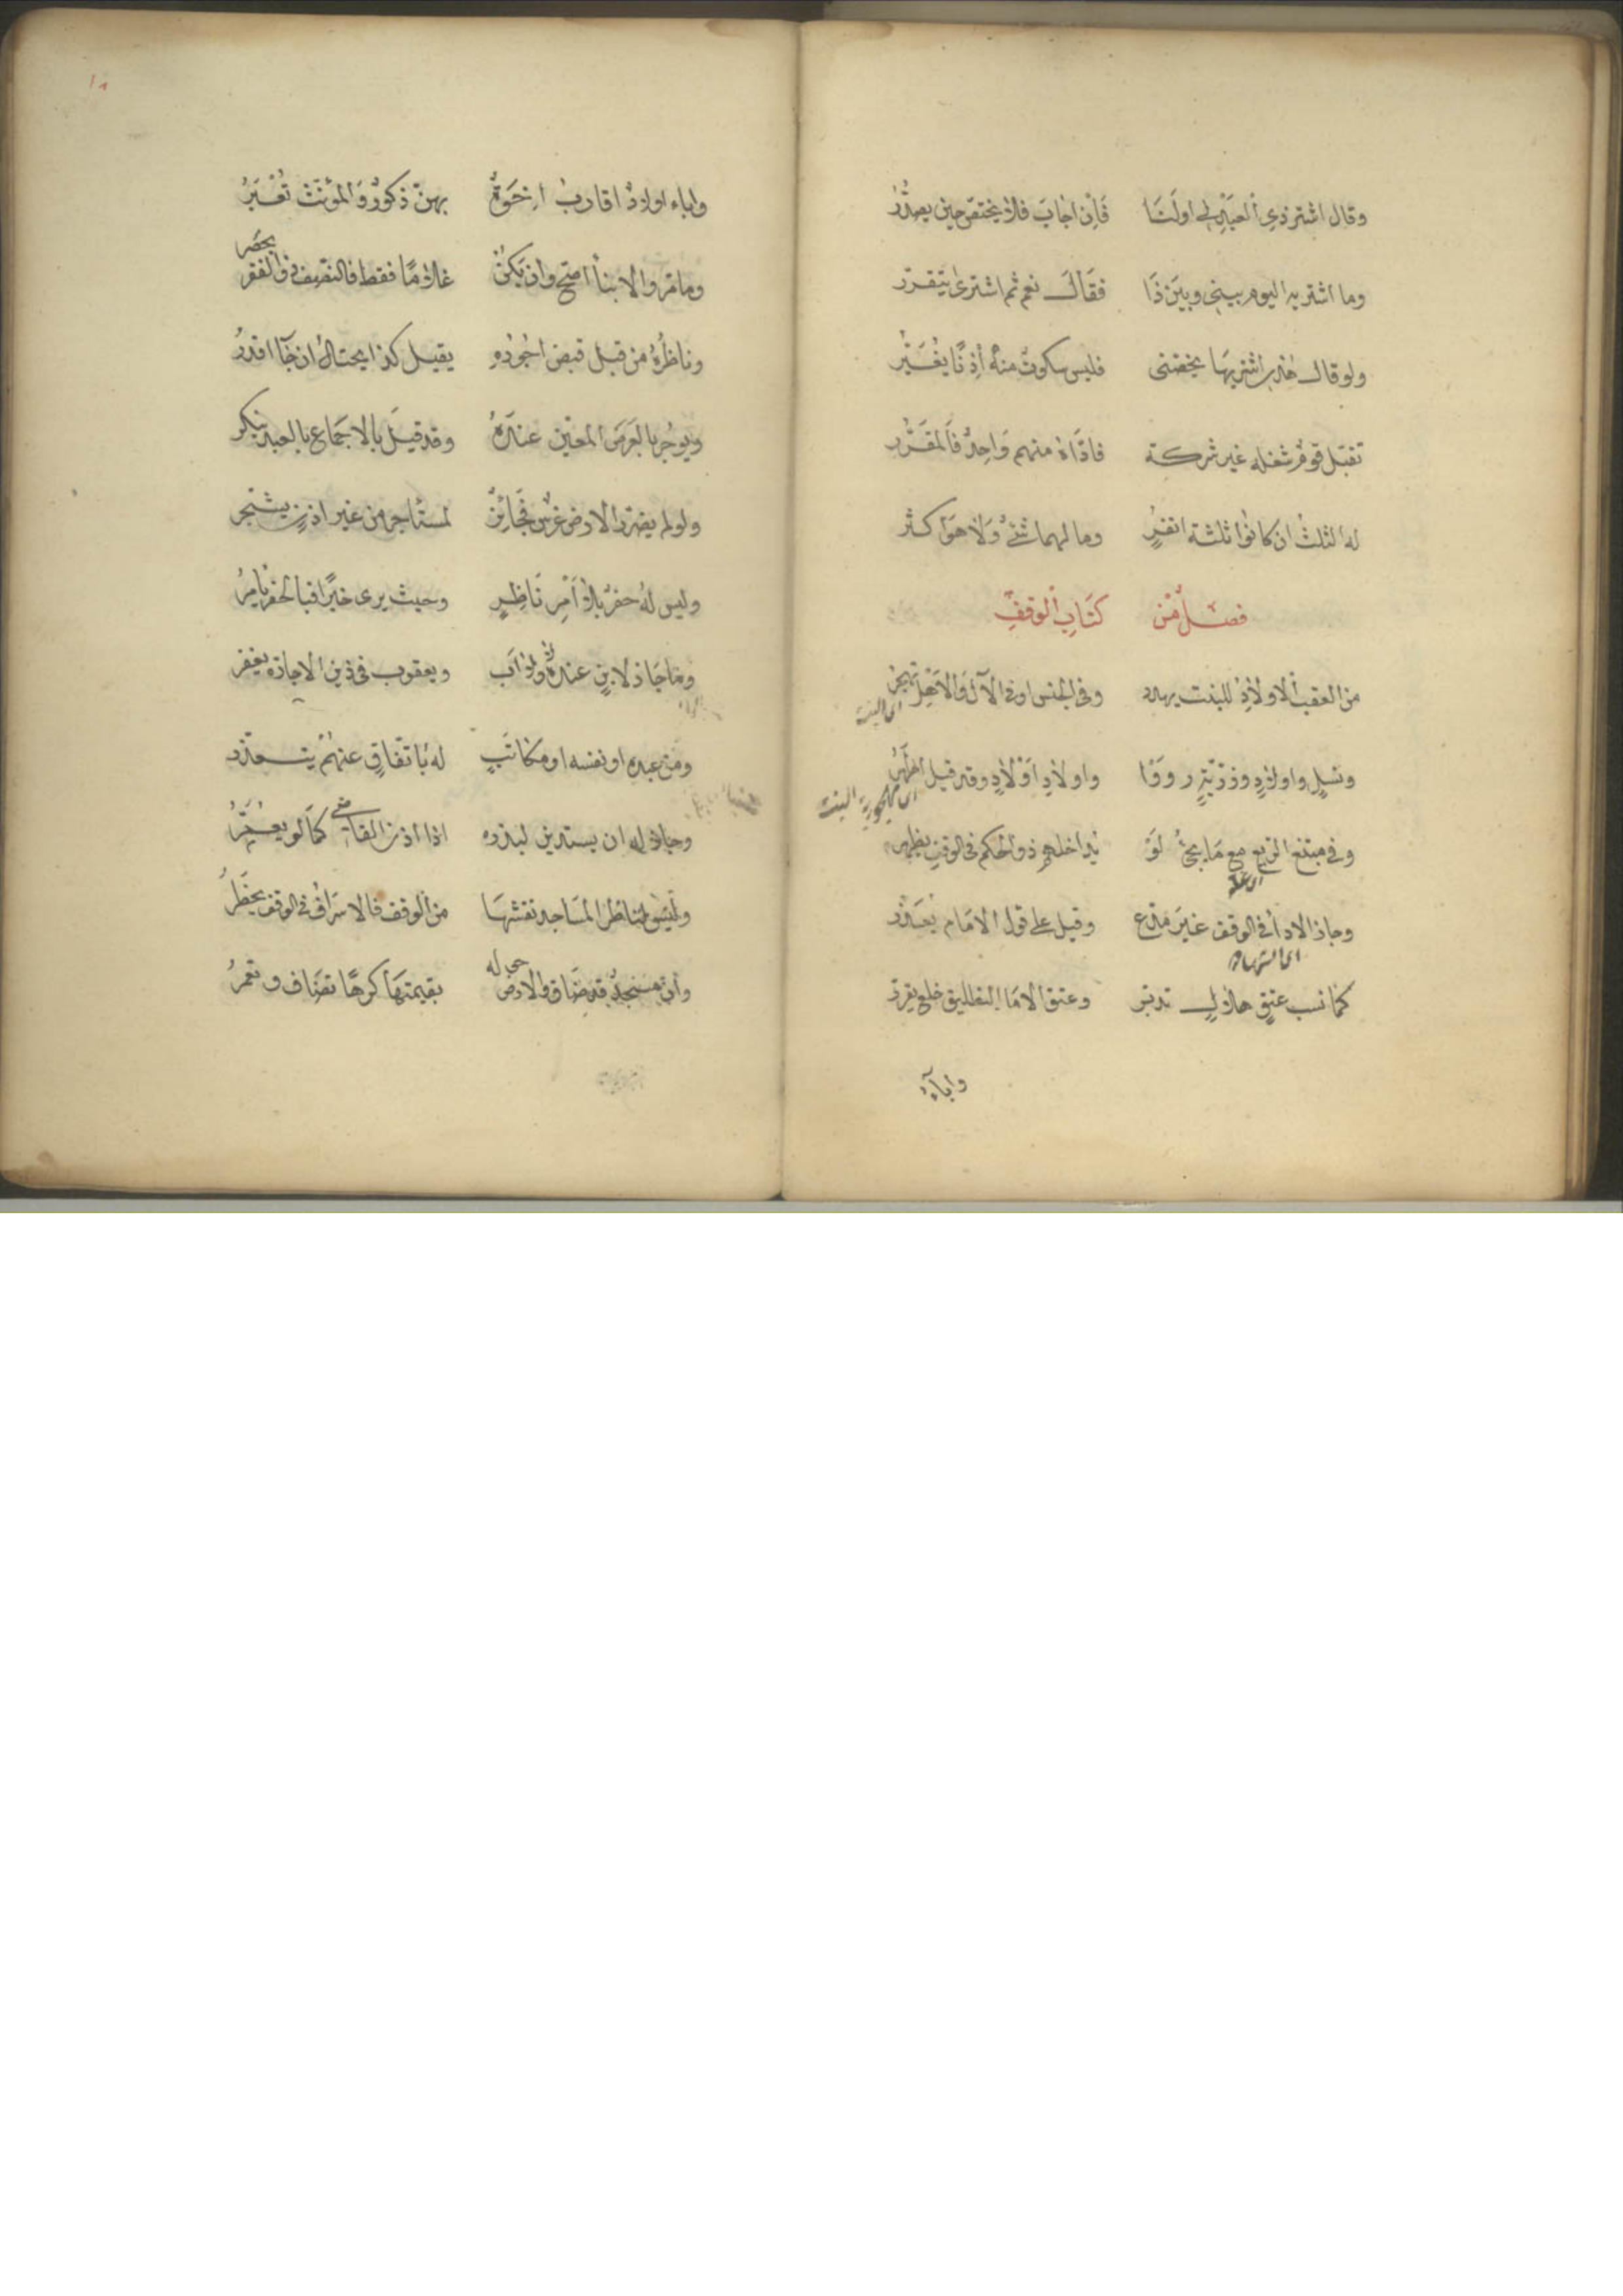 وقال اشتر ذي العبد لي او لنا فان اجاب فلا يختص حين يصدر
وما اشتريه اليوم بيني وبين ذا فقال نعم ثم اشترى يتقرر
ولو قال هذي اشتريها يخصني فليس سكوت منه اذنا يغير
تقبل قوم شغله غير شركة فاداه منهم واحد فالمقرر
له الثلث ان كانوا ثلثة انفر وما لهما شئ ولا هو اكثر
فصل من كتاب الوقف
من العقب الاولاد للبنت يهدر وفي الجنس او في الآل والاهل تهجر
اى البنت
ونسل واولاد وذرية رووا واولاد اولاد وقد قيل اظهر
اى مهجورية البنت
وفي مبتغ الربع مع ما يجئ لو يداخلهم ذو الحكم في الوقف يظهر
وجاز الادا في الوقف غير مدع وقيل على قول الامام يعذر
اى الشهادة
كما نسب عتق هلال تدبر وعتق الاما التطليق خلع يقرر
وابآء
١٨
واباء اولاد اقارب اخوة بهن ذكور والمؤنث تعبر
وما مر والابنا اصح وان يكن غلاما فقط فالنصف في والفقر
يحصر
وناظره من قبل قبض اجوره يقيل كذا يحتال ان جا اقدر
ويوجر بالعرض المعين عنده وقد قيل بالاجماع بالعبد ينكر
ولو لم يضر الارض غرس فجائز لمستاجر من غير اذن يشجر
وليس له حفر بلا امر ناظر وحيث يرى خيرا فبالحفر يامر
وما جاز لابن عنده ولا اب ويعقوب في ذين الاجازة يغفر
ومن عبده او نفسه او مكاتب له باتفاق عنهم يتعذر
وجاز له ان يستدين لبذره اذا اذن القاضي كما لو يعمر
وليس لناظر المساجد نقشها من الوقف فالاسراف في الوقف يحظر
وان مسجد قد ضاق والارض حوله بقيمتها كرها تضاف وتعمر